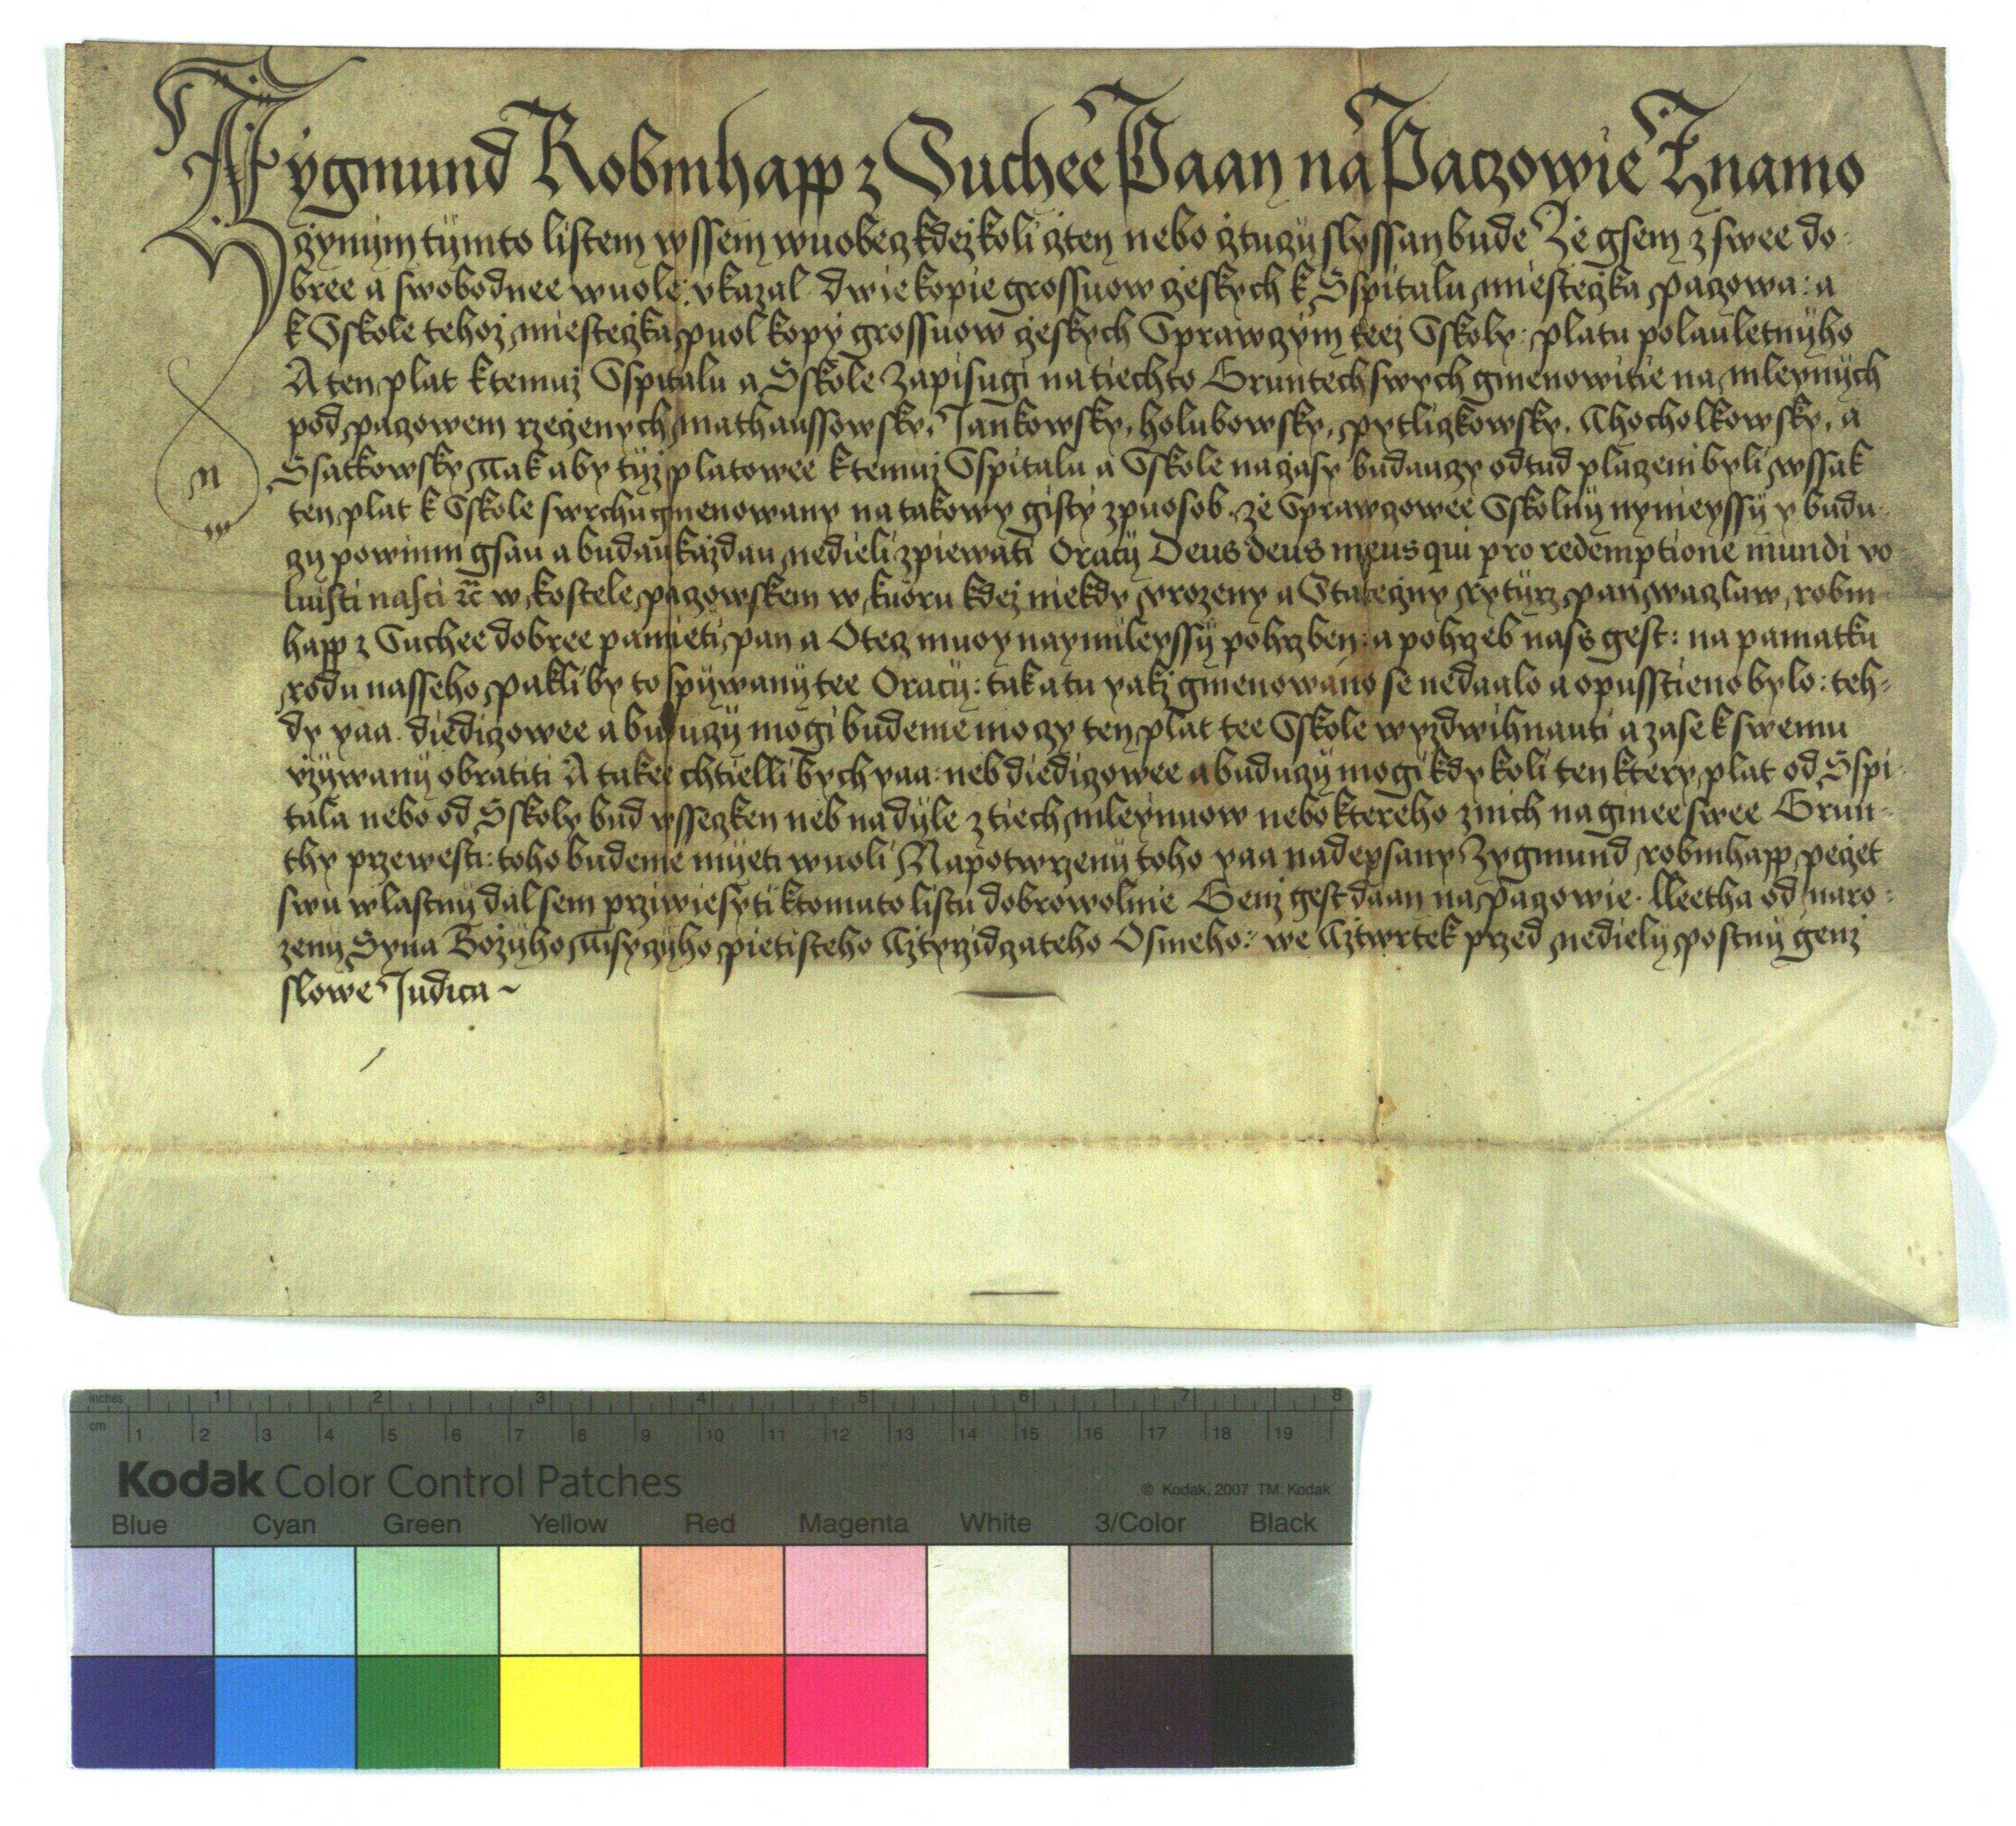 Zygmund Robmhapp z Suchee Paan na Paczowie Znamo
czynym tÿmto listem wssem wuobecz kdezkoli cżten nebo cżtuczÿ slyssan bude Że gsem z swee do-
bree a swobodnee wuole: vkazal dwie kopie grossuow cżeskych k Sspitalu miestecżka paczowa: a
k Sskole tehoż miestecżka puol kopy grossuow cżeskych Sprawczÿm teeż Sskoly: platu polauletnÿho
A ten plat k temuż Sspitalu a Sskole Zapisugi na tiechto Gruntech swych gmenowitie na mleynÿch
pod paczowem rzecżenych mathaussowsky, Jankowsky, holubowsky, pytlicżkowsky, Chocholkowsky, a
Ssatkowsky Tak aby tÿż platowee k temuż Sspitalu a Sskole na cżasy budauczy odtud placzeni byli wssak
ten plat k Sskole swrchugmenowany na takowy gisty zpuosob. że Sprawczowee Sskolnÿ nynieyssÿ y budu-
czy powinni gsau a budau każdau nedieli zpiewati Oracÿ Deus deus meus qui pro redemptione mundi vo
luisti nasci ꝛc̄ w kostele paczowskem w kuoru kdeż niekdy vrozeny a Statecżny rytÿrz pan waczlaw robm-
happ z Suchee dobree pamieti pan a Otecz muoy naymileyssÿ pohrzben: a pohrzeb nass gest: na pamatku
rodu nasseho pakliby to spÿwanÿ tee Oracÿ: tak a tu yakż gmenowano se nedaalo a opusstieno bylo: teh-
dy yaa diediczowee a buduczÿ mogi budeme moczy ten plat tee Sskole wyzdwihnauti a zase k swemu
vżÿwanÿ obratiti A takee chtielli bych yaa: neb diediczowee a buduczÿ mogi kdykoli ten ktery plat od Sspi-
tala nebo od Sskoly bud wsseczken neb na dÿle z tiech mleynuow nebo ktereho z nich na ginee swee Grun-
thy przewesti: toho budeme mÿeti wuoli Na potwrzenÿ toho yaa nadepsany Zygmund robmhapp pecżet
swu wlastnÿ dal sem przÿwiesyti k tomuto listu dobrowolnie Genż gest daan na paczowie. Leetha od naro-
zenÿ Syna Bożÿho Tisyczÿho pietisteho Cżtyrzidczateho Osmeho: we Cżtwrtek przed nediely postnÿ genż
slowe Judica ~
inches 1 2 3 4 5 6 7 8
cm 1 2 3 4 5 6 7 8 9 10 11 12 13 14 15 16 17 18 19
Kodak Color Control Patches
© Kodak, 2007 TM: Kodak
Blue Cyan Green Yellow Red Magenta White 3/Color Black